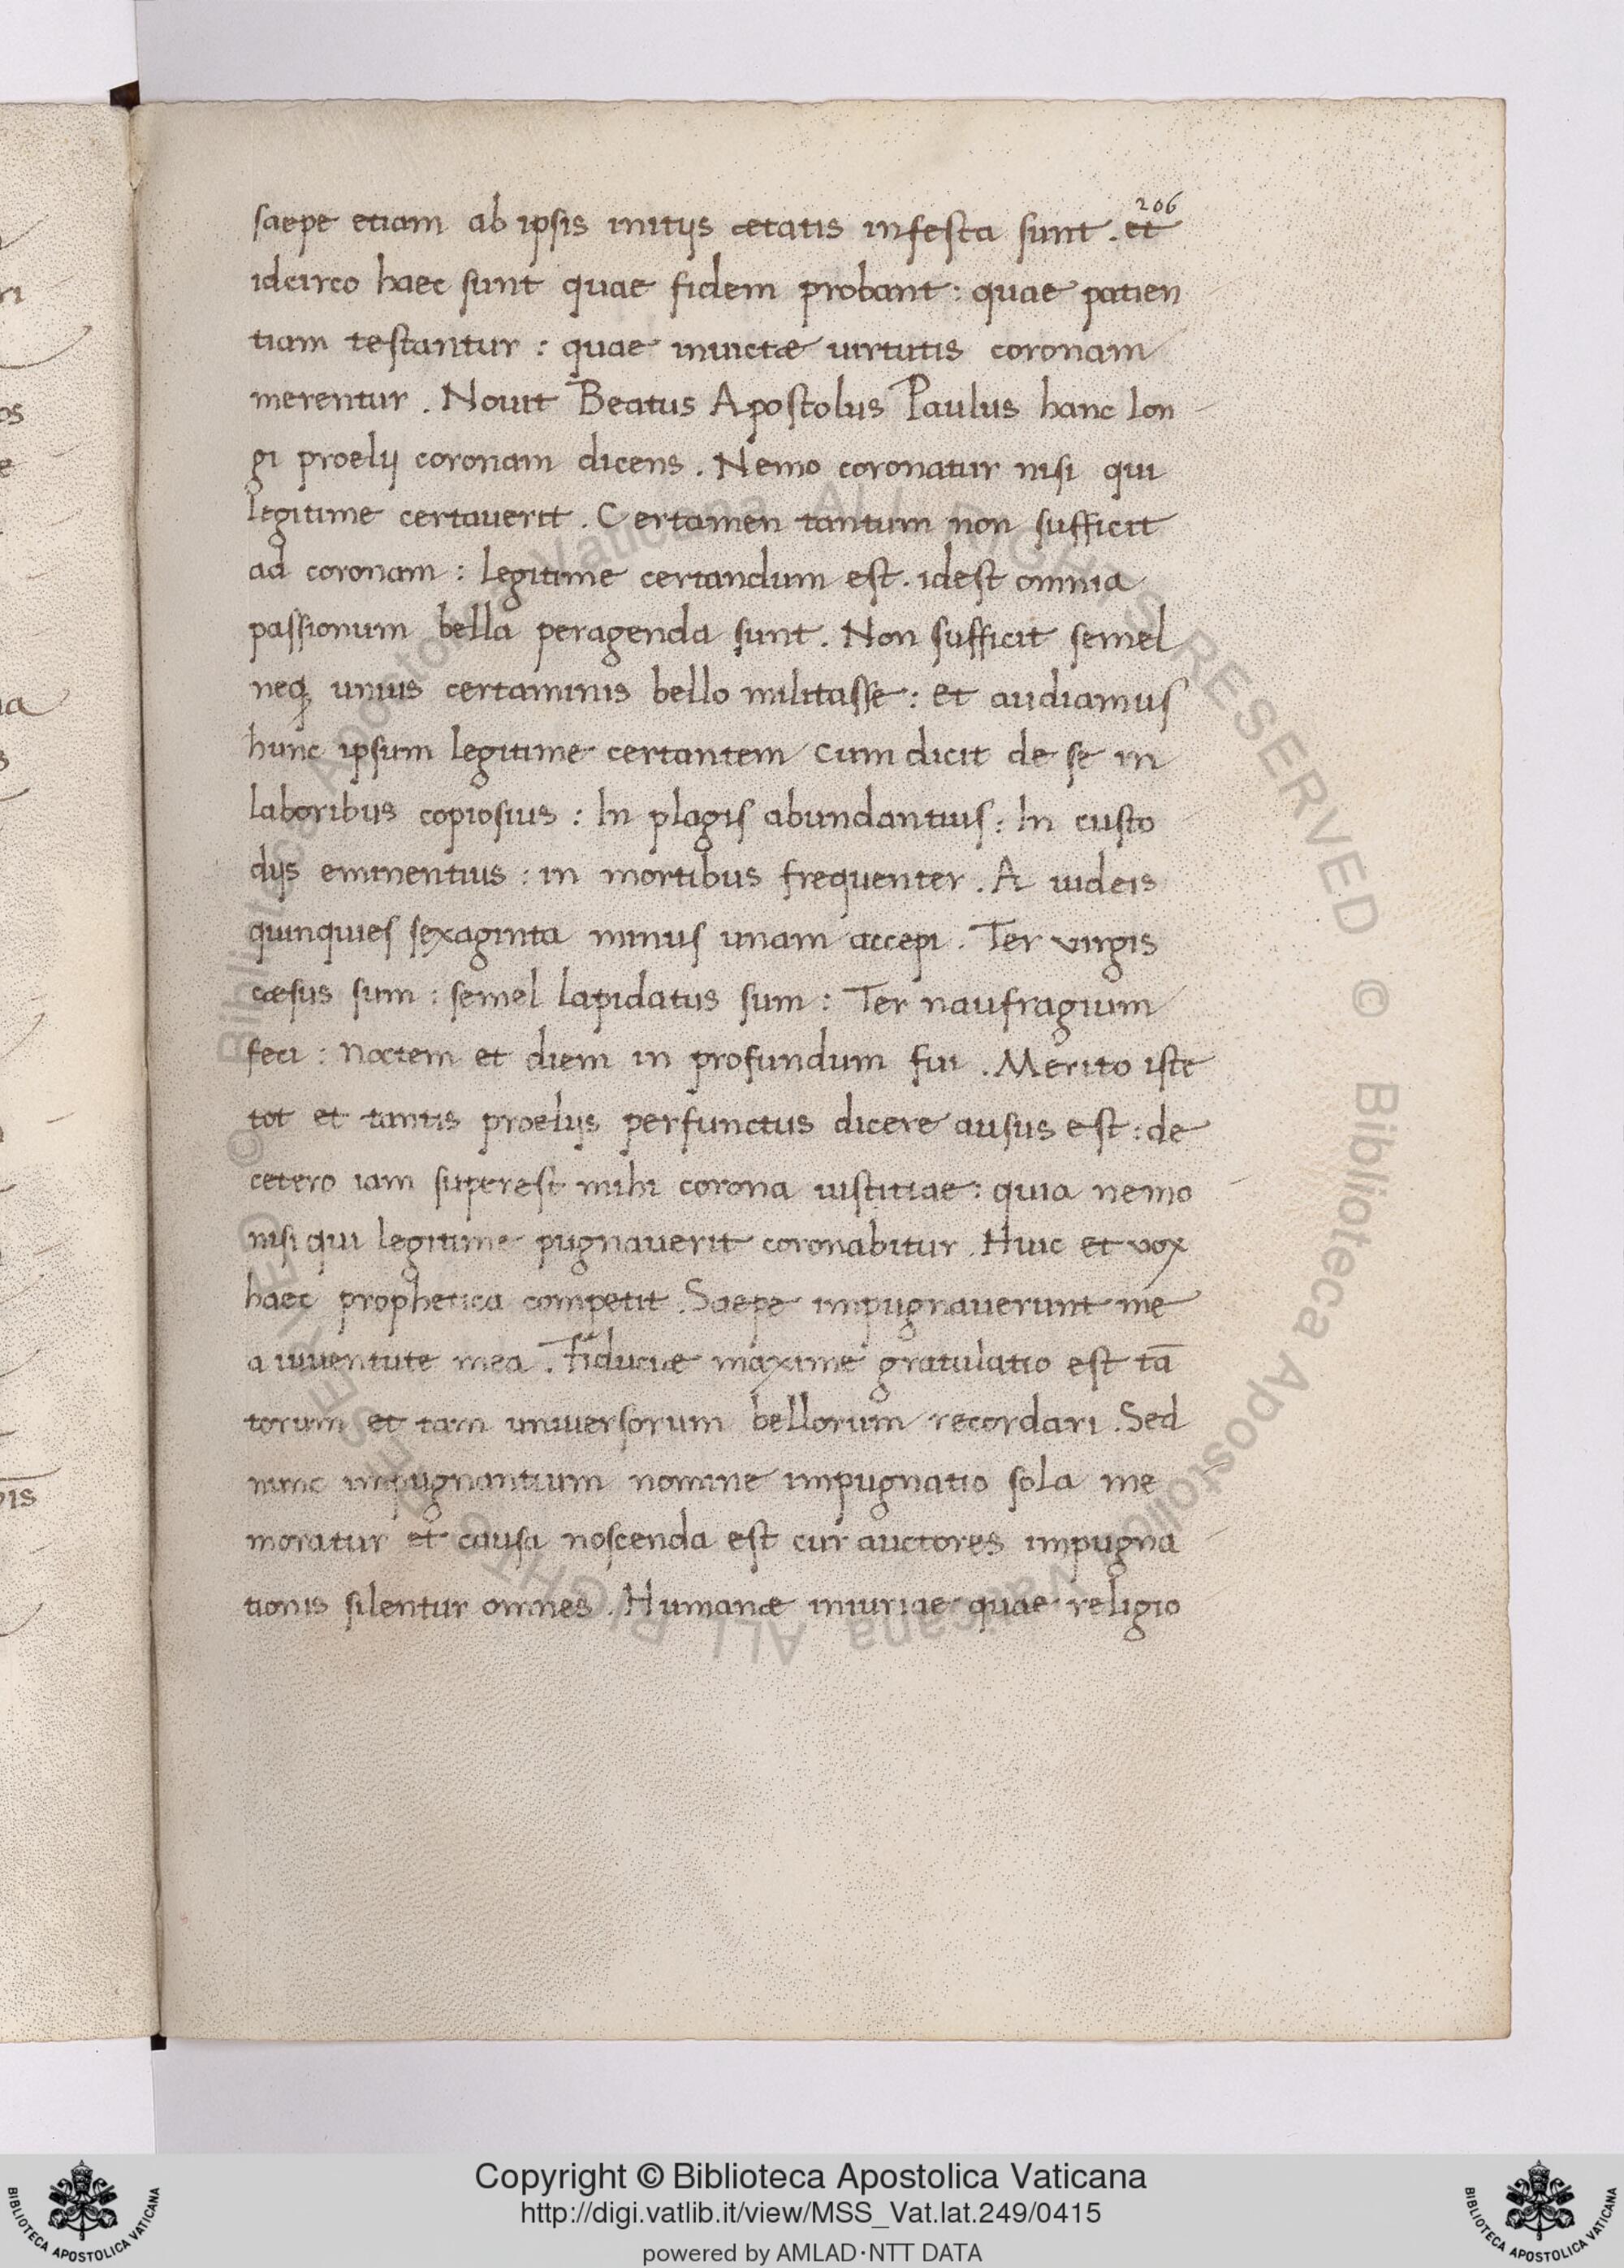 206
saepe etiam ab ipsis initijs ætatis infesta sunt. et
idcirco haec sunt quae fidem probant: quae patien
tiam testantur: quae inuictæ uirtutis coronam
merentur. Nouit Beatus Apostolus Paulus hanc lon
gi proelij coronam dicens. Nemo coronatur nisi qui
legitime certauerit. Certamen tantum non sufficit
ad coronam: legitime certandum est. idest omnia
passionum bella peragenda sunt. Non sufficit semel
neq; unius certaminis bello militasse: et audiamus
hunc ipsum legitime certantem cum dicit de se in
laboribus copiosius: In plagis abundantius: In custo
dijs eminentius: in mortibus frequenter. A iudeis
quinquies sexaginta minus unam accepi. Ter virgis
cæsus sum: semel lapidatus sum: Ter naufragium
feci: noctem et diem in profundum fui. Merito iste
tot et tantis proelijs perfunctus dicere ausus est: de
cetero iam superest mihi corona iustitiae: quia nemo
nisi qui legitime pugnauerit coronabitur. Huic et vox
haec prophetica competit. Saepe impugnauerunt me
a iuuentute mea. Fiduciæ maxime gratulatio est tā
torum et tam uniuersorum bellorum recordari. Sed
nunc impugnantium nomine impugnatio sola me
moratur et causa noscenda est cur auctores impugna
tionis silentur omnes. Humanæ iniuriae quae religio
Copyright © Biblioteca Apostolica Vaticana
http://digi.vatlib.it/view/MSS_Vat.lat.249/0415
powered by AMLAD·NTT DATA
BIBLIOTECA APOSTOLICA VATICANA
BIBLIOTECA APOSTOLICA VATICANA
© Biblioteca Apostolica Vaticana ALL RIGHTS RESERVED © Biblioteca Apostolica Vaticana ALL RIGHTS RESERVED